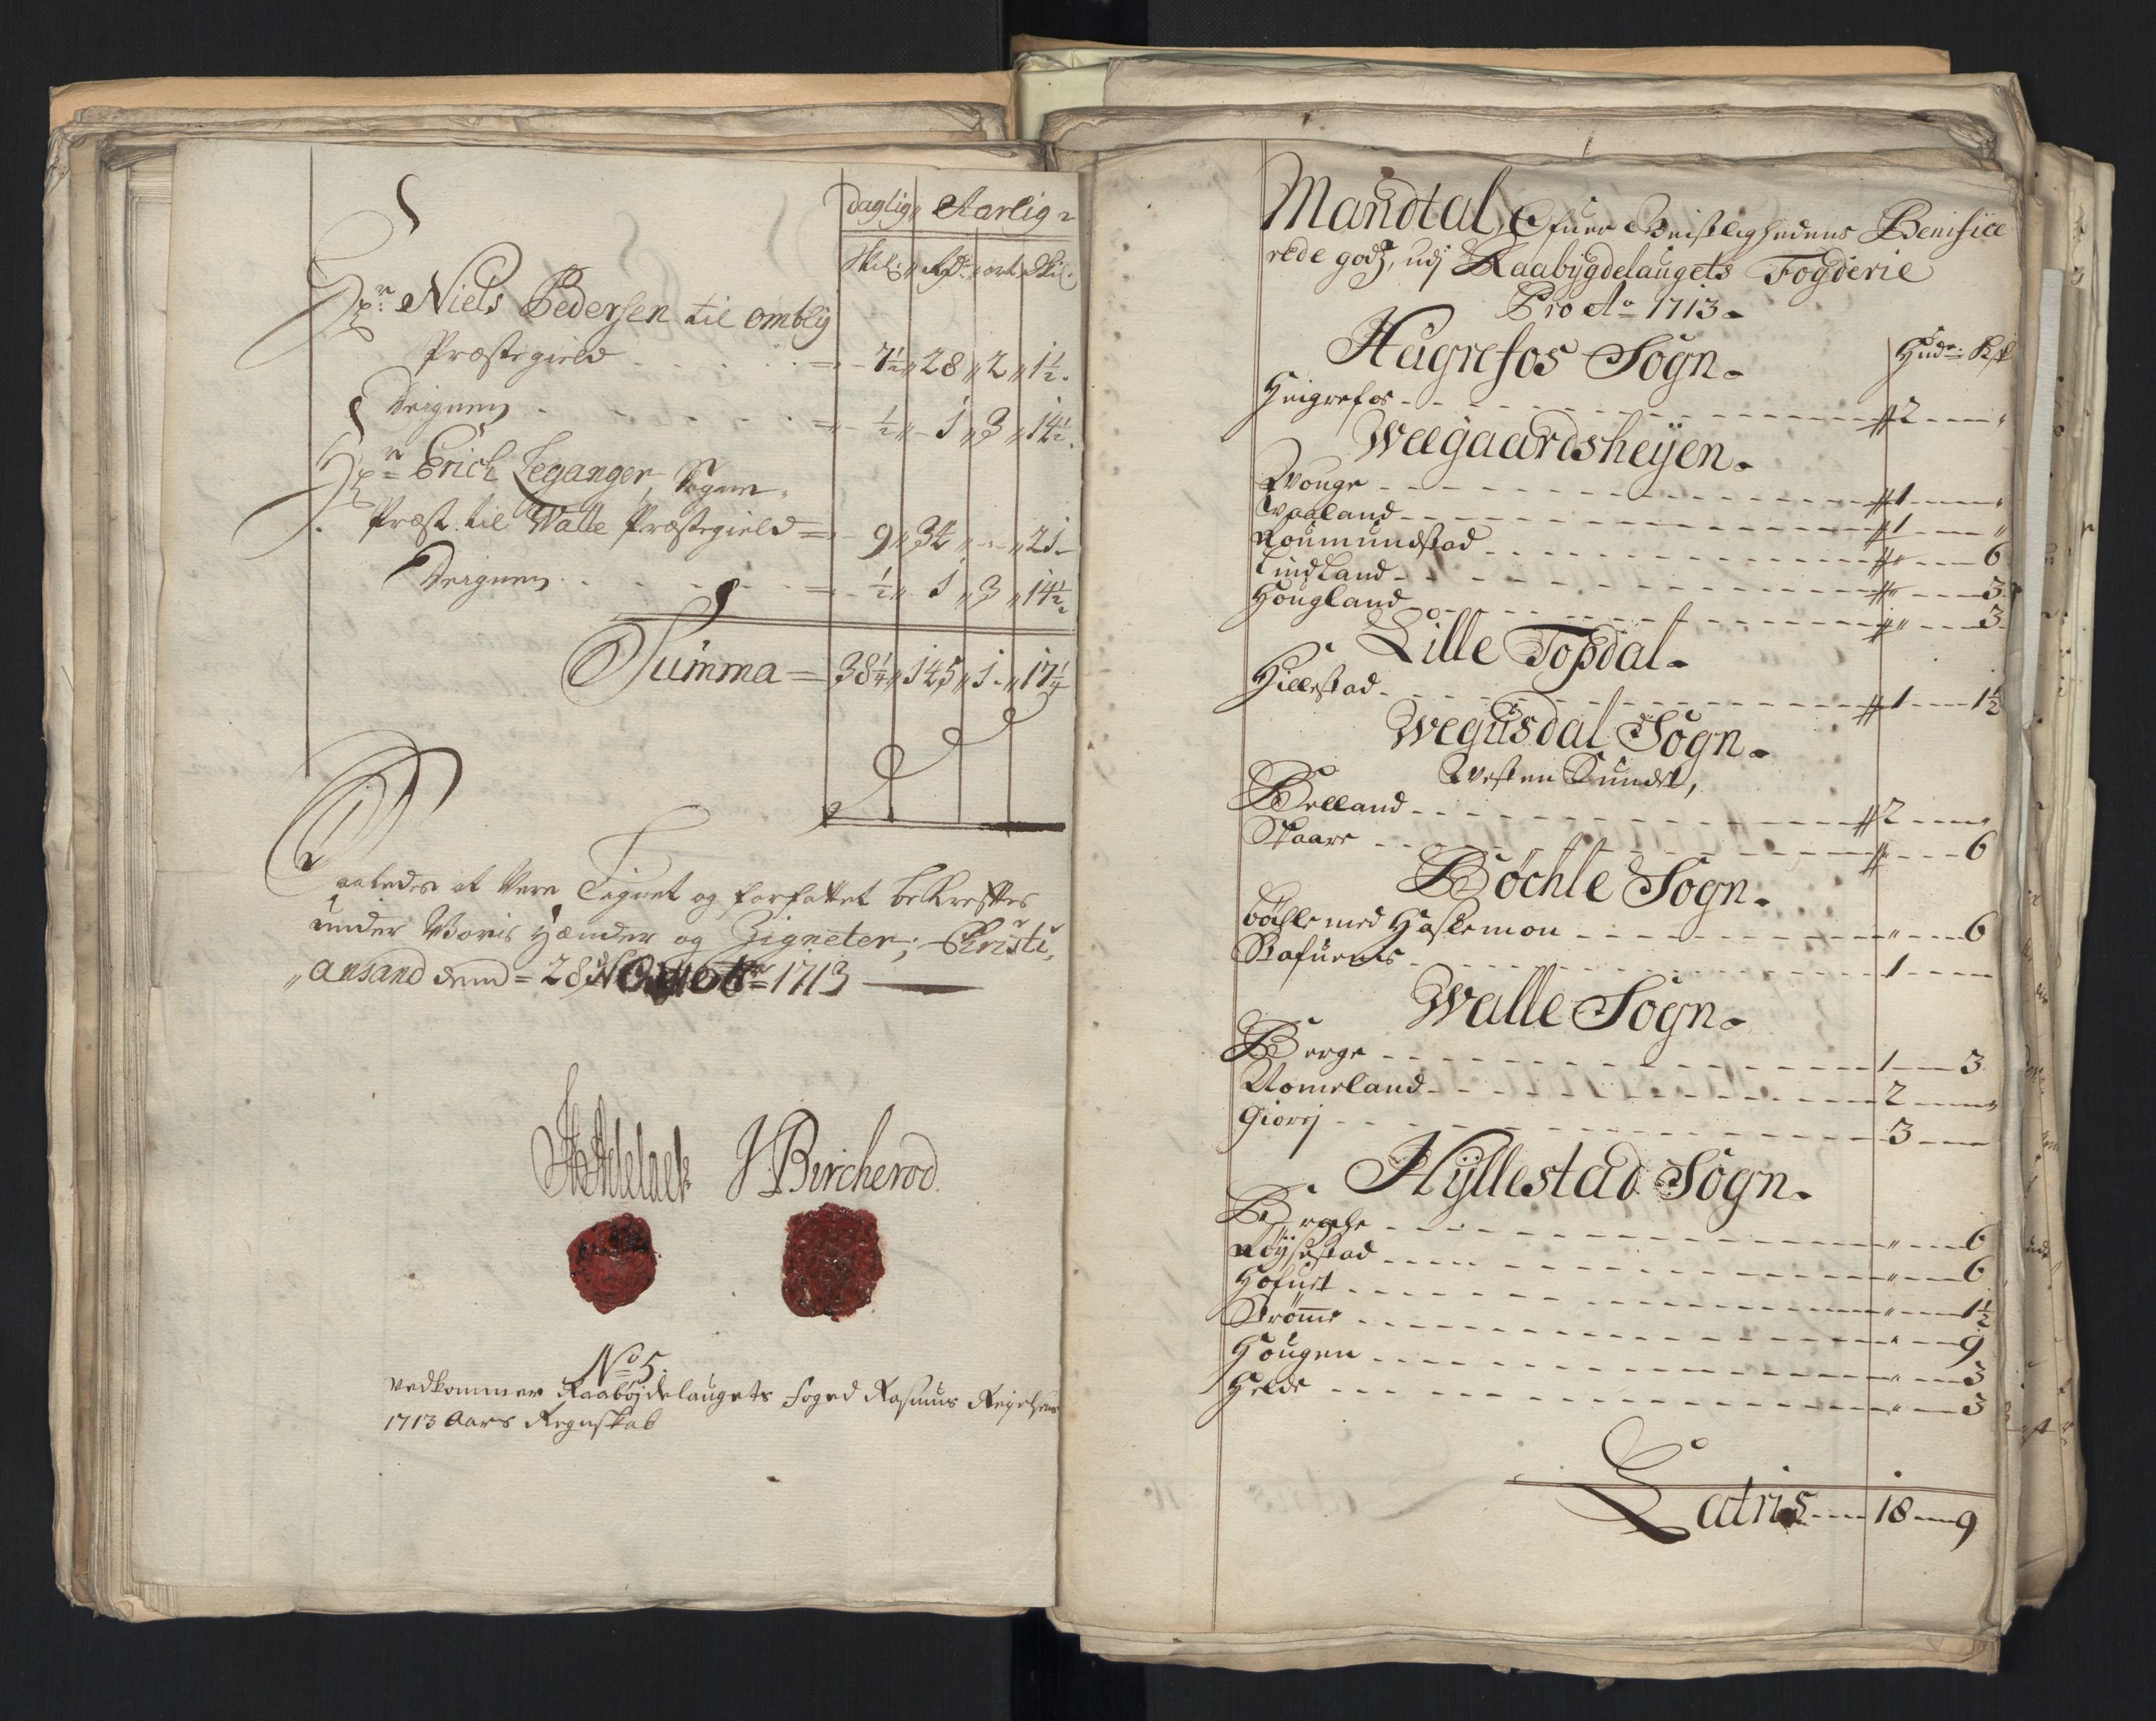 daglig„ Aarlig„
Skil: „ Rdr „ ort „ Skil:
Hr: Niels Pedersen til omblj
Præstegield - - - - = 7½ „ 28 „ 2 „ 1½.
Deignen - - - - - = ½ „ 1 „ 3 „ 14½.
Hr: Erich Leganger, Sogne
Præst til Walle Præstegield = 9 „ 34 „ - „ 21.
Deignen - - - - - = ½ „ 1 „ 3 „ 14½
Summa = 38¼ „ 145 „ 1 „ 17¼
Saaledes at Vere Tignet og forfattet bekreftes
under Voris Hænder og Zigneter; Christi,
„ansand dend = 28 Novembr = 1713
J. Bircherod.
No 5.
vedkommer Raabøjdelaugets foged Rasmus
1713 Aars Regnskab
Mandtal, Ofuer Geistlighedens Benifice
rede godz, udj Raabygdelaugets Fogderie
Pro Ao 1713.
Heigrefos Sogn.
Hude: Kf
Heigrefos - - - # 2 - - „
Weegaardsheijen.
Wonge - - - # 1 - - „
Waaland - - - # 1 - - „
Roumundstad - - - # „ - - 6
Lindland - - - # „ - - 3.
Hougland - - - # „ - - 3.
Lille Topdal.
Hillestad - - - # 1 - - 1½
Wegusdal Sogn.
Westen Sundet,
Belland - - - # 2 - - „
Skaare - - - # „ - - 6
Bøchle Sogn.
bøchle med Haslemon - - - „ - - 6
Rafuenes - - - 1 - -
Walle Sogn.
Berge - - - 1 - - 3.
Romeland - - - 2 - - „
Giorej - - - 3 - -
Hyllestad Sogn.
Brocke - - - „ - - 6
Røijsestad - - - „ - - 6.
Hofuet - - - „ - - 1½
Strømme - - - „ - - 9
Hougen - - - „ - - 3
Helde - - - „ - - 3
Latris - - 18 - - 9